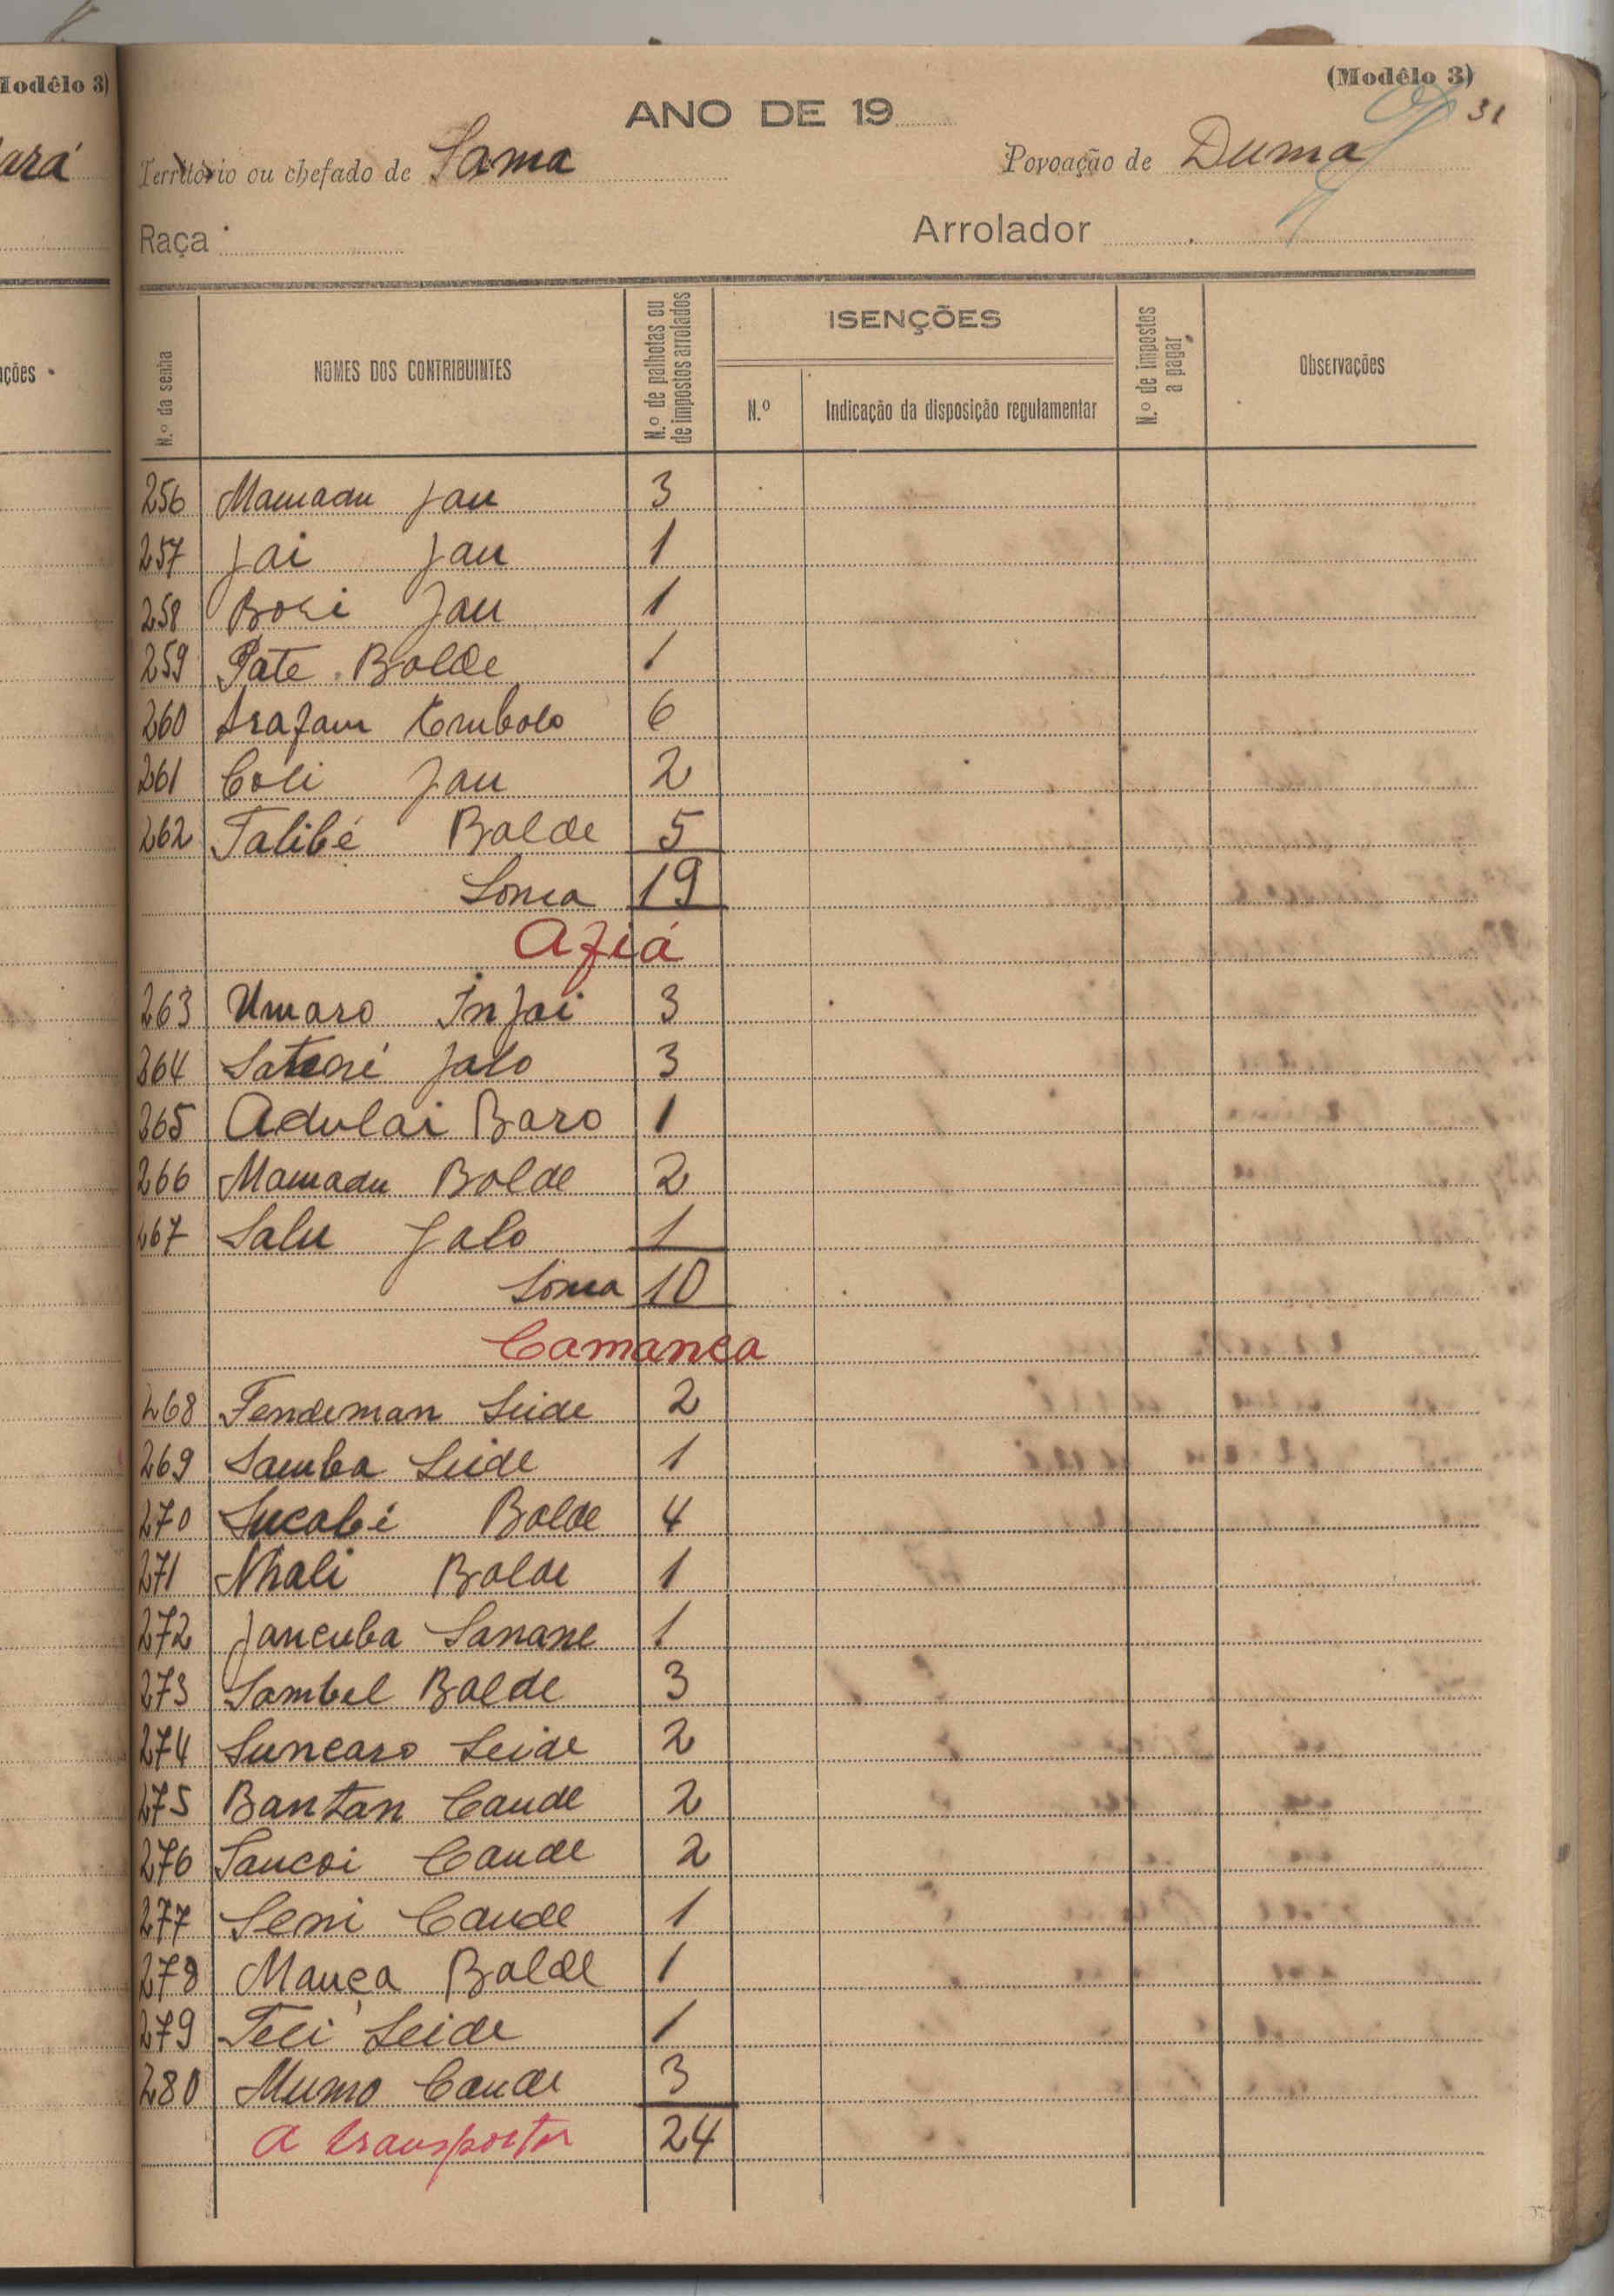 Modêlo 3)
ará
ções
(Modêlo 3)
31
ANO DE 19
Território ou chefado de Sama
Povoação de Duma
Raça
Arrolador
N.º da senha
NOMES DOS CONTRIBUINTES
N.º de palhotas ou de impostos arrolados
ISENÇÕES
N.º
Indicação da disposição regulamentar
N.º de impostos a pagar
Observações
256 Mamadu Jau 3
257 Jai Jau 1
258 Bori Jau 1
259 Pate Balde 1
260 Arafam 6
261 Coli Jau 2
262 Talibé Balde 5
Soma 19
Afiá
263 Umaro Injai 3
264 Jalo 3
265 Adulai Baro 1
266 Mamadu Balde 2
267 Salu Jalo 1
Soma 10
Camanca
268 Fendeman Seide 2
269 Samba Seide 1
270 Sucabé Balde 4
271 Nhali Balde 1
272 Jancuba Sanane 1
273 Sambel Balde 3
274 Suncaro Seide 2
275 Bantan Cande 2
276 Sancoi Cande 2
277 Seni Cande 1
278 Mança Balde 1
279 Teli Seide 1
280 Mumo Cande 3
A transportar 24